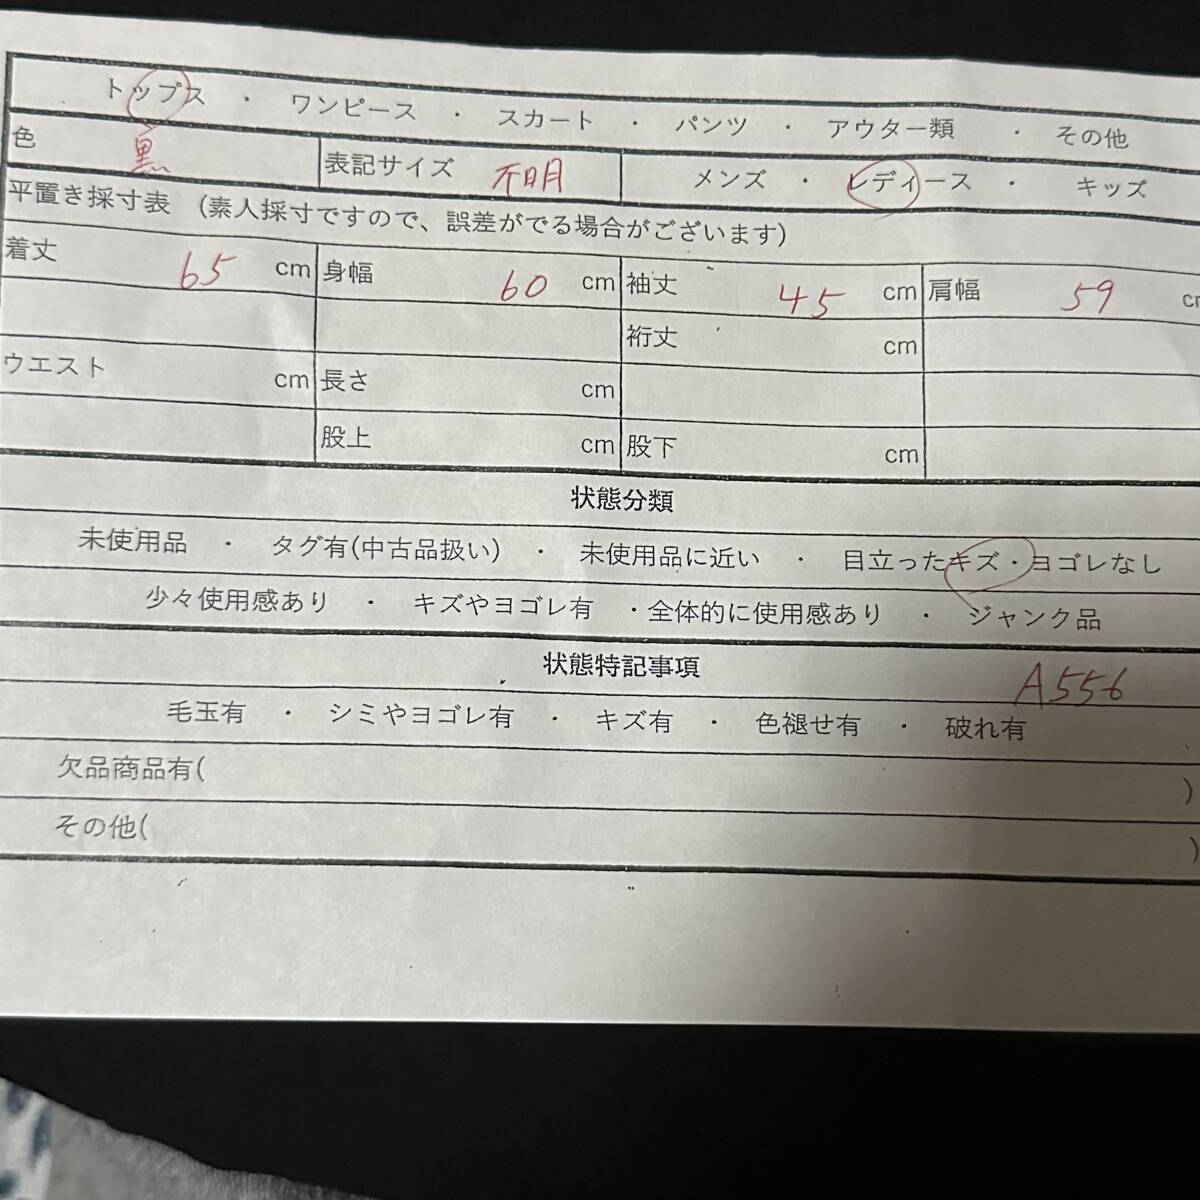 トップス ・ ワンピース ・ スカート ・ パンツ ・ アウター類 ・ その他
色 黒 表記サイズ 不明 メンズ ・ レディース ・ キッズ
平置き採寸表 (素人採寸ですので、誤差がでる場合がございます)
着丈 65 cm 身幅 60 cm 袖丈 45 cm 肩幅 59 cm
裄丈 cm
ウエスト cm 長さ cm
股上 cm 股下 cm
状態分類
未使用品 ・ タグ有(中古品扱い) ・ 未使用品に近い ・ 目立ったキズ・ヨゴレなし
少々使用感あり ・ キズやヨゴレ有 ・全体的に使用感あり ・ ジャンク品
状態特記事項 A556
毛玉有 ・ シミやヨゴレ有 ・ キズ有 ・ 色褪せ有 ・ 破れ有
欠品商品有( )
その他( )